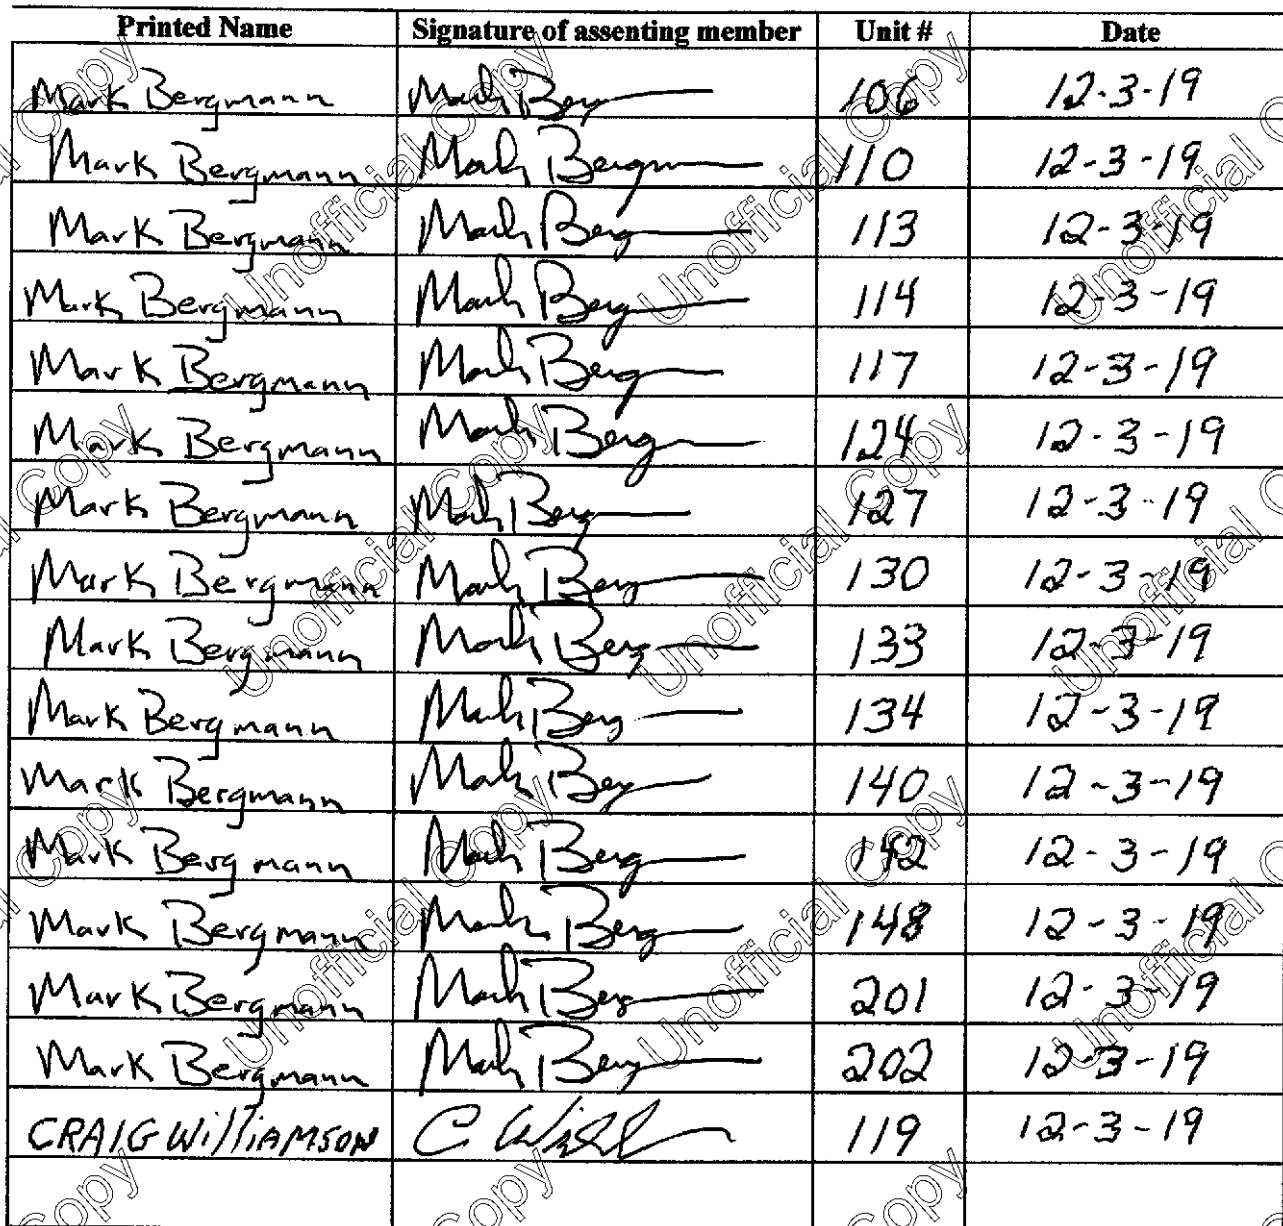 Printed Name Signature of assenting member Unit # Date
Mark Bergmann Mark Berg 106 12-3-19
Mark Bergmann Mark Bergm 110 12-3-19
Mark Bergmann Mark Berg 113 12-3-19
Mark Bergmann Mark Berg 114 12-3-19
Mark Bergmann Mark Berg 117 12-3-19
Mark Bergmann Mark Berg 124 12-3-19
Mark Bergmann Mark Berg 127 12-3-19
Mark Bergmann Mark Berg 130 12-3-19
Mark Bergmann Mark Berg 133 12-3-19
Mark Bergmann Mark Berg 134 12-3-19
Mark Bergmann Mark Berg 140 12-3-19
Mark Bergmann Mark Berg 142 12-3-19
Mark Bergmann Mark Berg 148 12-3-19
Mark Bergmann Mark Berg 201 12-3-19
Mark Bergmann Mark Berg 202 12-3-19
CRAIG WilliAMSON C 119 12-3-19
Unofficial Copy